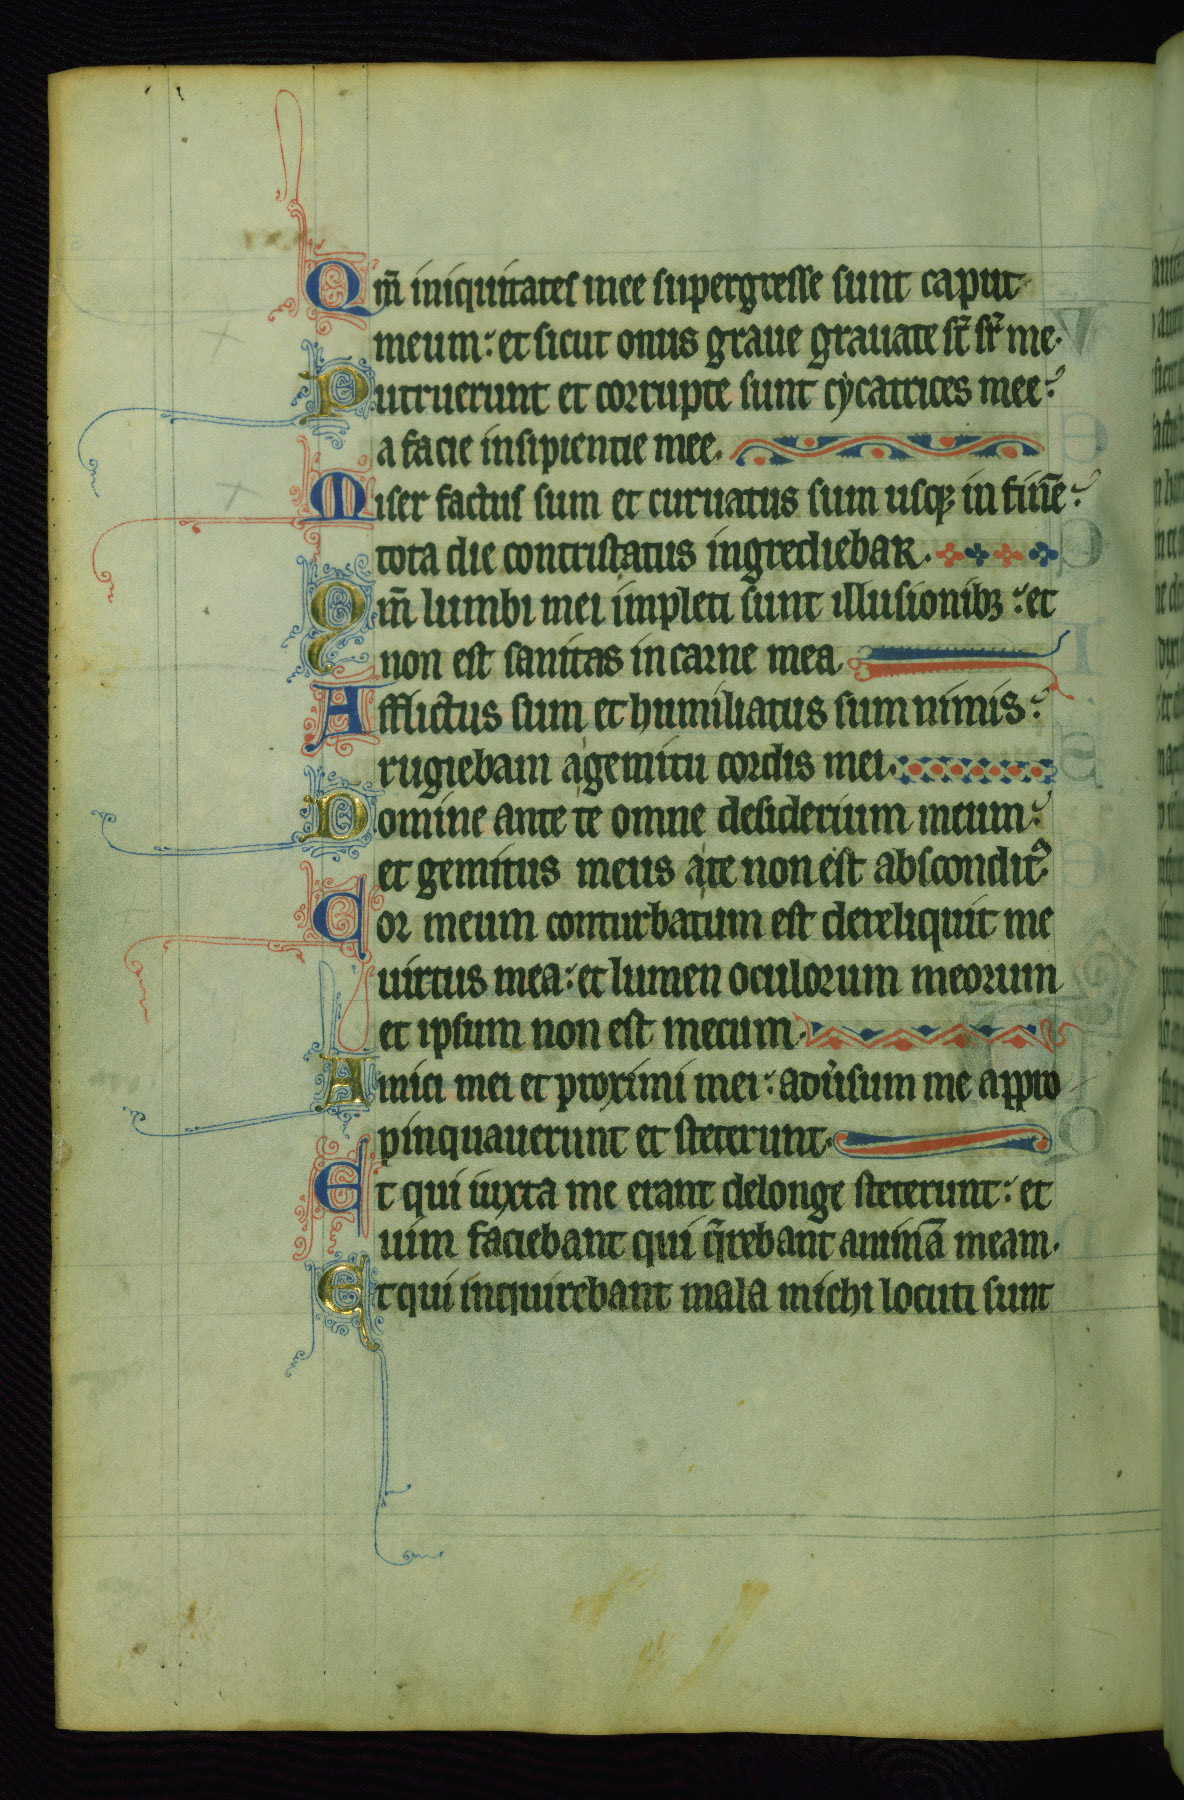 Qm̄ iniquitates mee supergresse sunt caput
meum: et sicut onus graue grauate st̄ sr̄ me.
Putruerunt et corrupte sunt cycatrices mee:
a facie insipientie mee.
Miser factus sum et curuatus sum usqꝫ in finē:
tota die contristatus ingrediebar.
Qm̄ lumbi mei impleti sunt illusionibꝫ: et
non est sanitas in carne mea
Afflictus sum et humiliatus sum nimis:
rugiebam a gemitu cordis mei.
Domine ante te omne desiderium meum:
et gemitus meus a te non est abscondit᾿
Cor meum conturbatum est dereliquit me
uirtus mea: et lumen oculorum meorum
et ipsum non est mecum.
Amici mei et proximi mei: adu̾sum me appro
pinquauerunt et steterunt.
Et qui iuxta me erant delonge steterunt: et
uim faciebant qui q̄rebant animā meam.
Et qui inquirebant mala michi locuti sunt